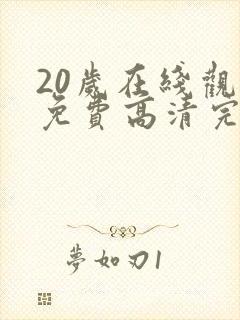 20歲在綫觀
免費高清完
夢如刃1